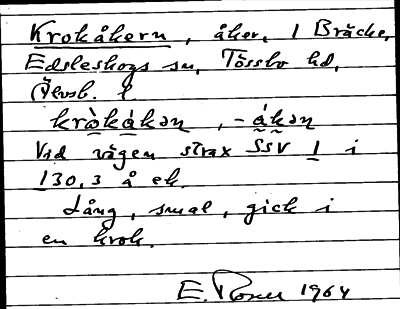 Krokåkern, åker, 1 Bräcke,
Edsleskogs sn, Tössbo hd,
Älvsb. l.
krò̰ká̰kən, -á̰kən
Vid vägen strax SSV 1 i
130,3 å ek.
Lång, smal, gick i
en krok.
E. 1964